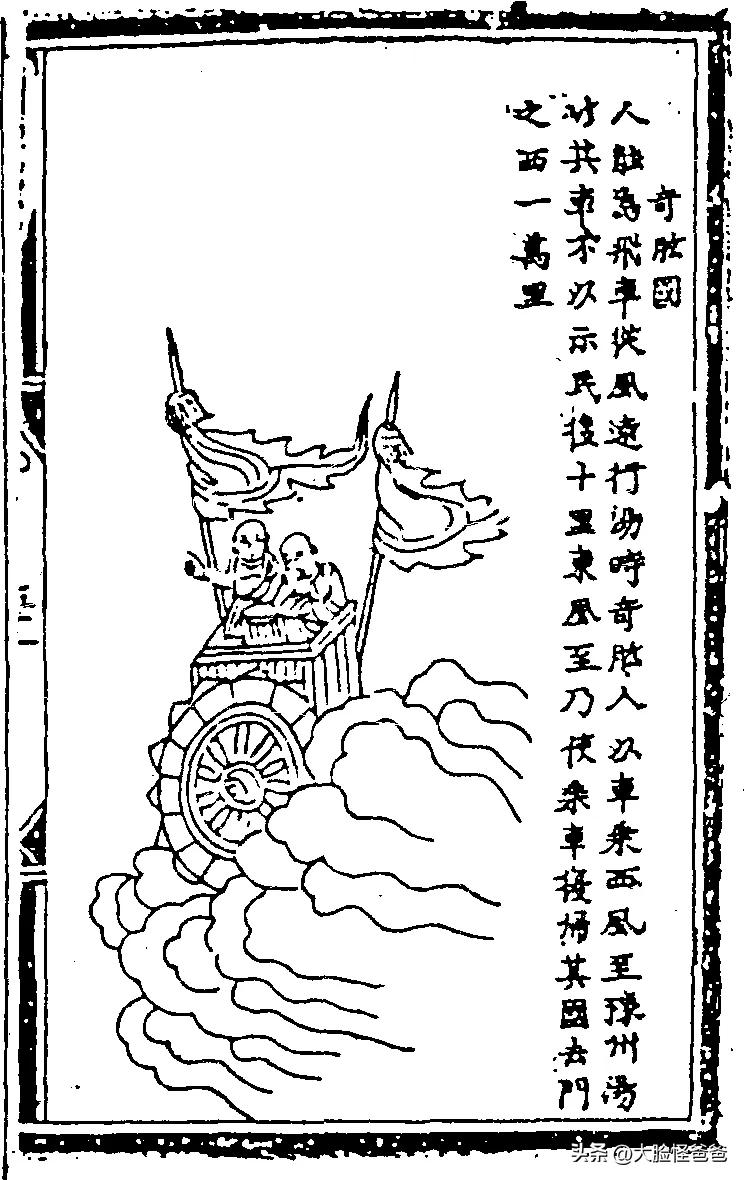 奇肱國
人能為飛車從風遠行湯時奇肱人以車乘西風至豫州湯
其車不以示民後十里東風至乃使乘車復歸其國去門
之西一萬里
头条 @大脸怪爸爸